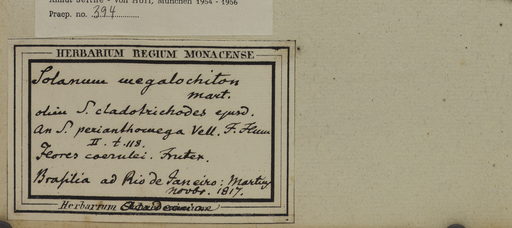 Annot. Jeffke - von Hoff, München 1954 - 1956
Praep. no. 394
HERBARIUM REGIUM MONACENSE
Solanum megalochiton
mart.
olim S. cladotrichodes ejusd.
An S. perianthomega Vell. F. Flum
II. t. 118.
Flores coerulei. Frutex.
Brasilia ad Rio de Janeiro: Martius
novbr. 1817.
Herbarium